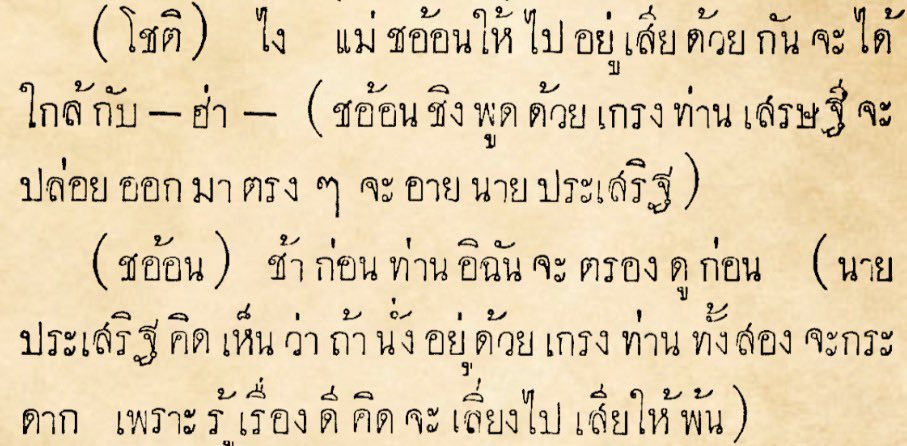 ( โชติ ) ไง แม่ ชอ้อนให้ ไป อยู่ เสีย ด้วย กัน จะ ได้
ใกล้ กับ — ฮ่า — ( ชอ้อน ชิง พูด ด้วย เกรง ท่าน เศรษฐี จะ
ปล่อย ออก มา ตรง ๆ จะ อาย นาย ประเสริฐี )
( ชอ้อน ) ช้า ก่อน ท่าน อิฉัน จะ ตรอง ดู ก่อน ( นาย
ประเสริฐี คิด เห็น ว่า ถ้า นั่ง อยู่ ด้วย เกรง ท่าน ทั้งสอง จะกระ
ดาก เพราะ รู้ เรื่อง ดี คิด จะ เลี่ยงไป เสียให้ พ้น )